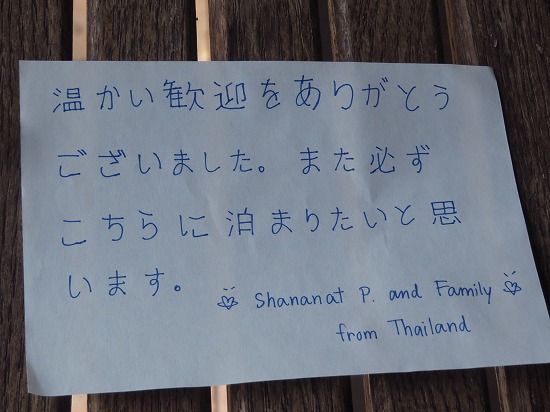 温かい歓迎をありがとう
ございました。また必ず
こちらに泊まりたいと思
います。
Shananat P. and Family
from Thailand